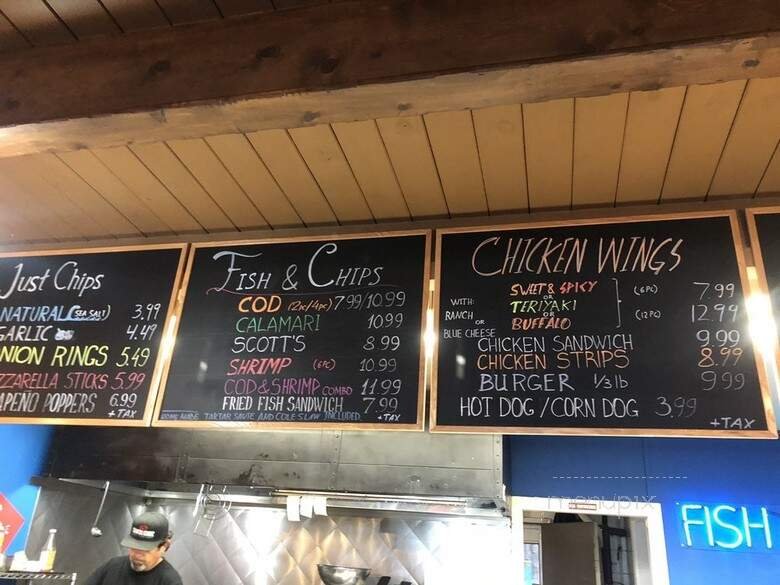 Just Chips
NATURAL (SEA SALT) 3.99
GARLIC 4.49
ONION RINGS 5.49
MOZZARELLA STICKS 5.99
JALAPENO POPPERS 6.99
+TAX
FISH & CHIPS
COD (2PC/4PC) 7.99/10.99
CALAMARI 10.99
SCOTT'S 8.99
SHRIMP (6PC) 10.99
COD & SHRIMP COMBO 11.99
FRIED FISH SANDWICH 7.99
HOME MADE TARTAR SAUCE AND COLE SLAW INCLUDED +TAX
CHICKEN WINGS
WITH: RANCH OR BLUE CHEESE
SWEET & SPICY (6PC) 7.99
OR
TERIYAKI (12PC) 12.99
OR
BUFFALO
CHICKEN SANDWICH 9.99
CHICKEN STRIPS 8.99
BURGER 1/3 lb 9.99
HOT DOG / CORN DOG 3.99
+TAX
menupix
FISH